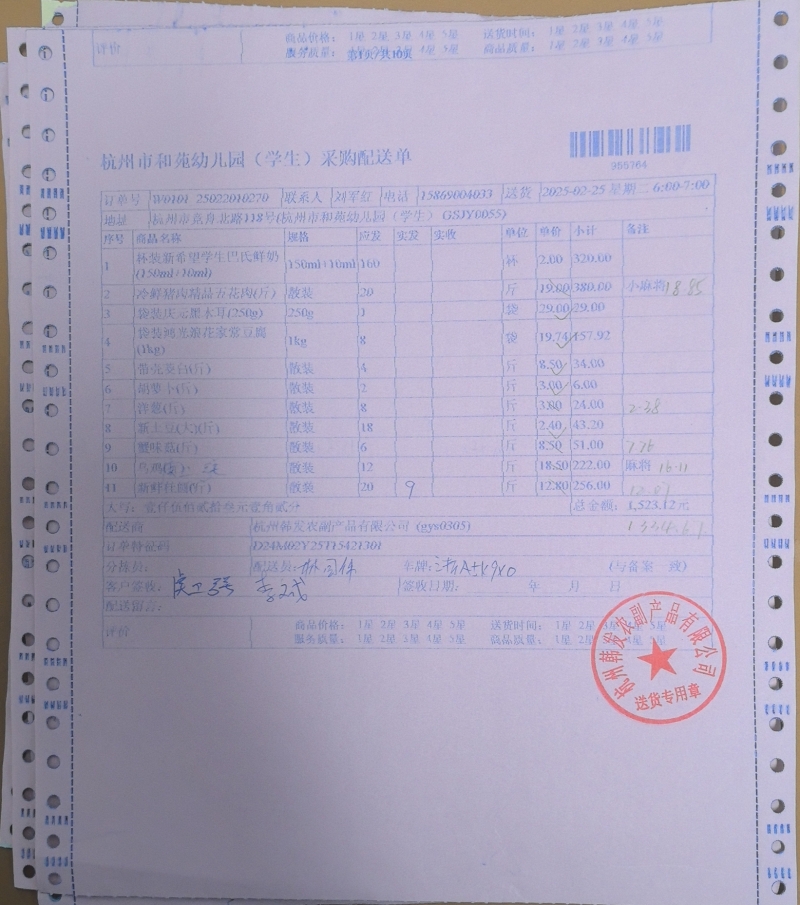 评价 商品价格： 1星 2星 3星 4星 5星 送货时间： 1星 2星 3星 4星 5星
服务质量： 1星 2星 3星 4星 5星 商品质量： 1星 2星 3星 4星 5星
第1页/共10页
杭州市和苑幼儿园（学生）采购配送单
955764
订单号 W0101 25022010270 联系人 刘军红 电话 15869004033 送货 2025-02-25 星期二 6:00-7:00
地址 杭州市 北路118号(杭州市和苑幼儿园（学生） GSJY0055)
序号 商品名称 规格 应发 实发 实收 单位 单价 小计 备注
1 杯装新希望学生巴氏鲜奶(150ml+10ml) 150ml+10ml 160 杯 2.00 320.00
2 冷鲜猪肉精品五花肉(斤) 散装 20 斤 19.00 380.00 小麻将 18.85
3 袋装庆元黑木耳(250g) 250g 1 袋 29.00 29.00
4 袋装 家常豆腐(1kg) 1kg 8 袋 19.74 157.92
5 带壳茭白(斤) 散装 4 斤 8.50 34.00
6 胡萝卜(斤) 散装 2 斤 3.00 6.00
7 洋葱(斤) 散装 8 斤 3.00 24.00 2.38
8 新土豆(大)(斤) 散装 18 斤 2.40 43.20
9 蟹味菇(斤) 散装 6 斤 8.50 51.00
10 乌鸡 散装 12 斤 18.50 222.00 麻将 16.11
11 新鲜 (斤) 散装 20 9 斤 12.80 256.00
大写：壹仟伍佰贰拾叁元壹角贰分 总金额：1,523.12元
配送商 杭州韩发农副产品有限公司 (gys0305)
订单特征码 D24M02Y25T15421301
分拣员： 配送员： 车牌： (与备案一致)
客户签收： 签收日期： 年 月 日
配送留言：
评价 商品价格： 1星 2星 3星 4星 5星 送货时间： 1星 2星 3星 4星 5星
服务质量： 1星 2星 3星 4星 5星 商品质量： 1星 2星 3星 4星 5星
杭州韩发农副产品有限公司
送货专用章